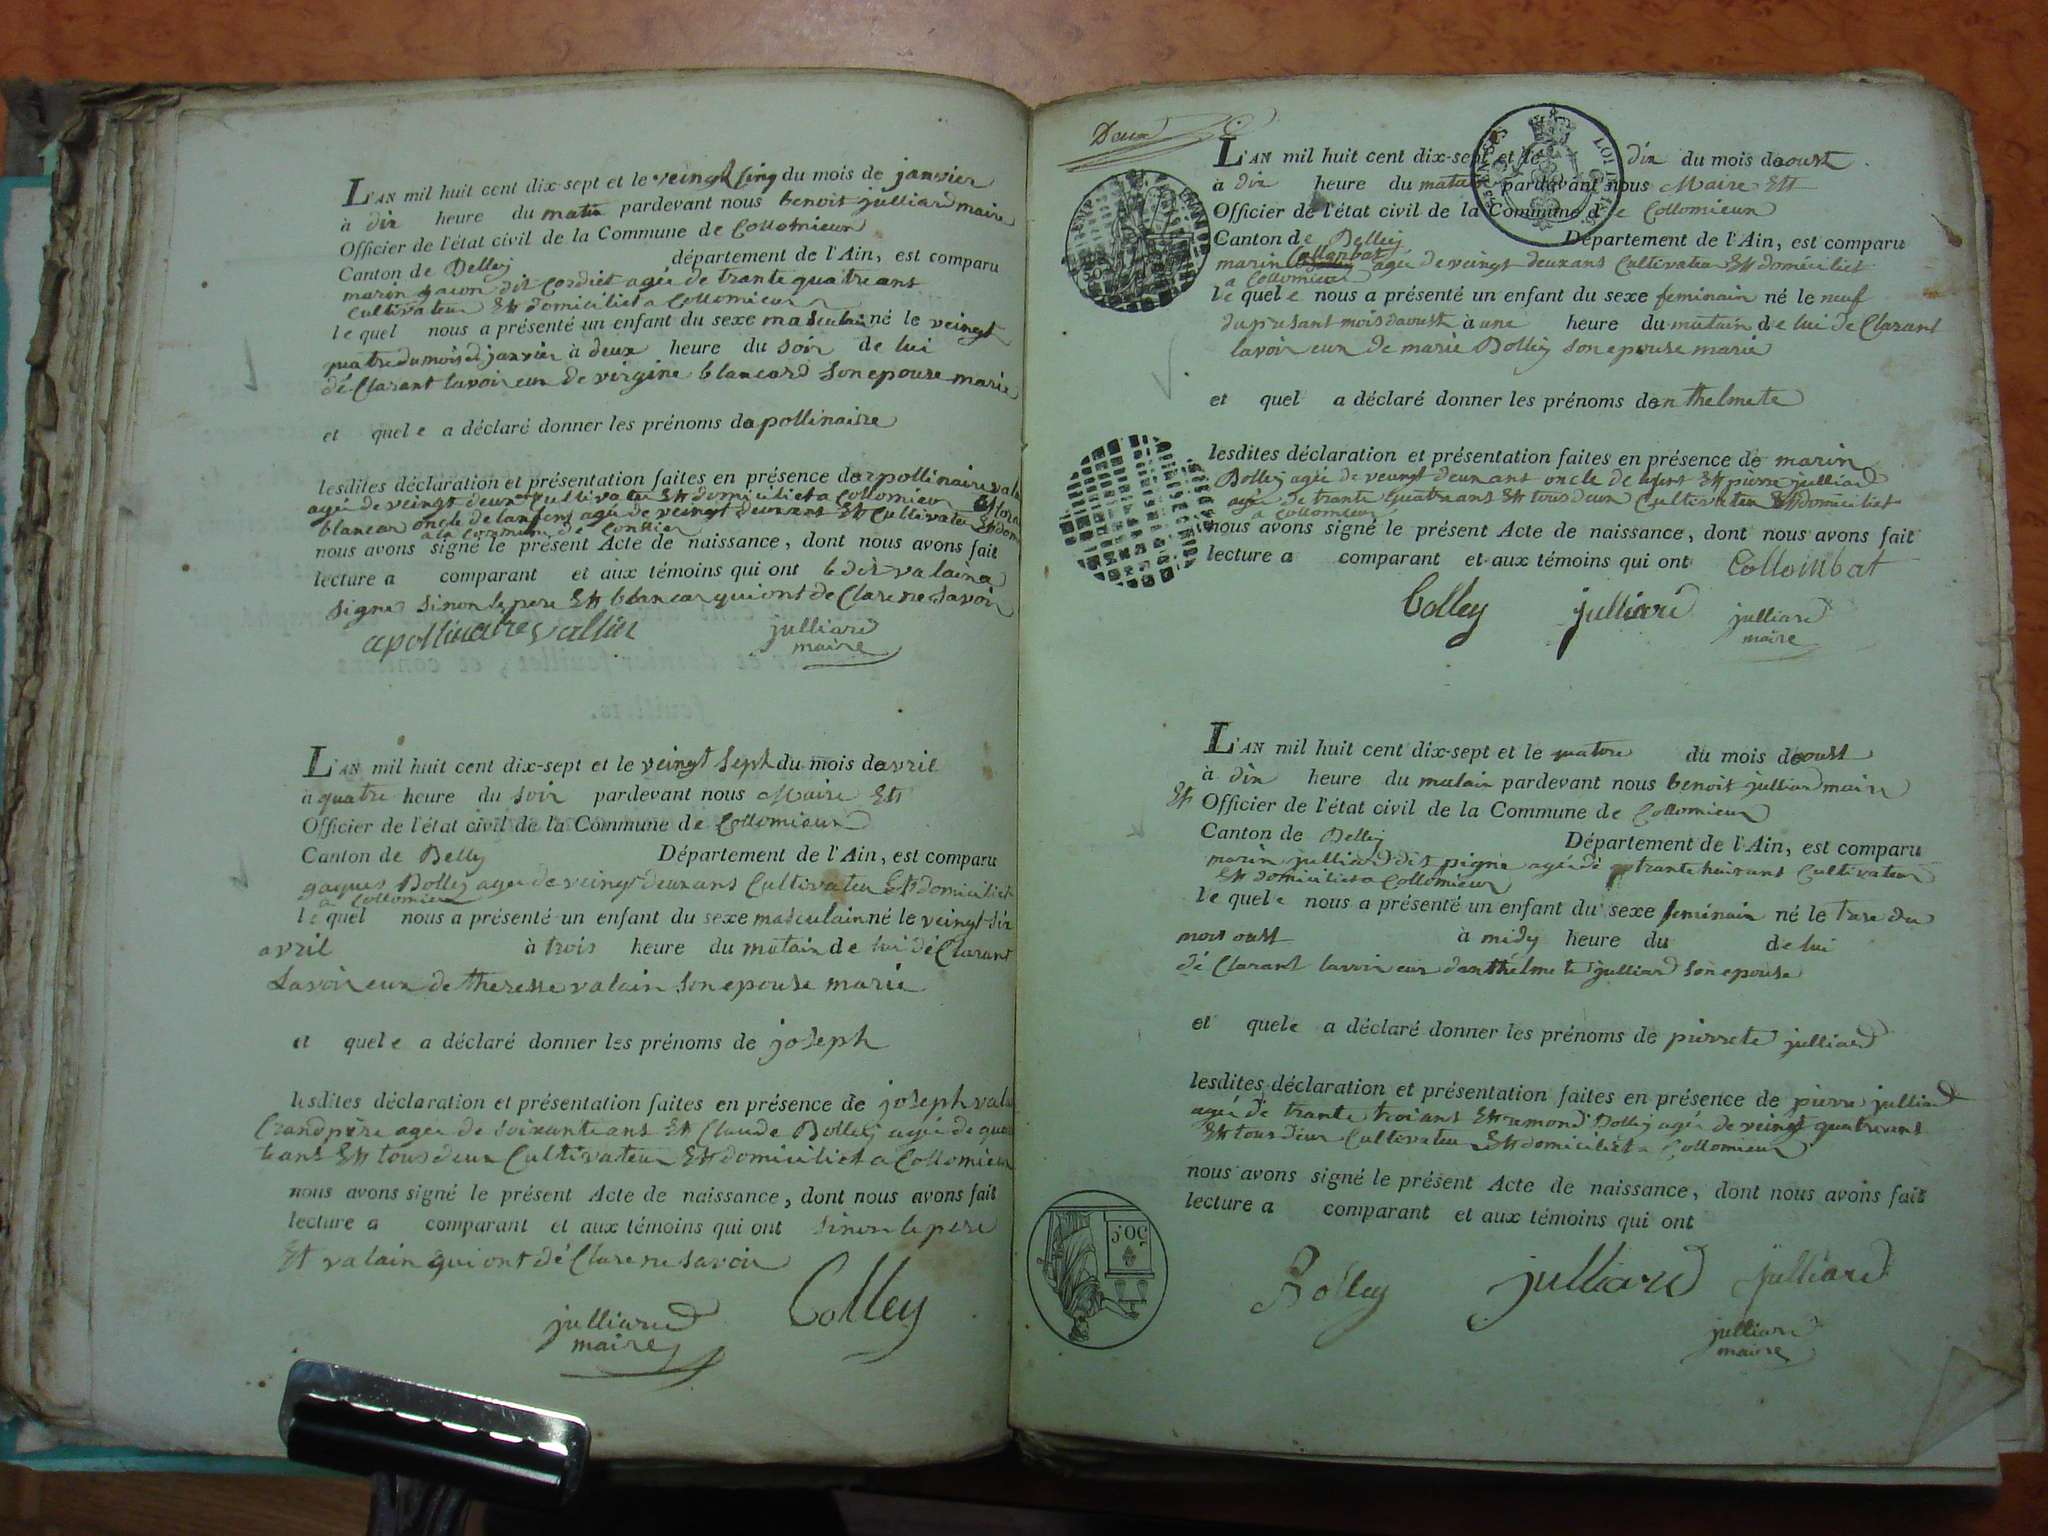 L'AN mil huit cent dix-sept et le veingt sinq du mois de janvier
à dix heure du matin pardevant nous benoit julliard maire
Officier de l'état civil de la Commune de Collomieux
Canton de Belley département de l'Ain, est comparu
marin dit Cordiet agée de trante quatre ans
Cultivateur Ett domiciliet a Collomieux
le quel nous a présenté un enfant du sexe masculain né le veingt
quatre du mois de janvier à deux heure du soir de lui
dé Clarant lavoir eux de virgine blancard son epouse marie
et quel e a déclaré donner les prénoms dapollinaire
lesdites déclaration et présentation faites en présence de apollinaire vala
agée de veingt deux ans Cultivateu Ett domiciliet a Collomieux
blancar oncle de lanfens agée de veingt deux ans Ett Cultivateu Ett dom
a la Commune de Contrier
nous avons signé le présent Acte de naissance, dont nous avons fait
lecture a comparant et aux témoins qui ont le dit valain a
signe sinon le pere Ett blancar qui ont de Clare ne savoir
apollinaire vallin julliard
maire
L'AN mil huit cent dix-sept et le veingt sept du mois davril
à quatre heure du soir pardevant nous Maire Ett
Officier de l'état civil de la Commune de Collomieux
Canton de Belly Département de l'Ain, est comparu
jaques Bolley agée de veingt deux ans Cultivateu Ett domiciliet
a Collomieux
le quel nous a présenté un enfant du sexe masculain né le veingt six
avril à trois heure du matain de lui dé Clarant
Lavoir eux de theresse valain son epouse marie
et quel e a déclaré donner les prénoms de joseph
lesdites déclaration et présentation faites en présence de joseph vala
Grandpère agée de soixante ans Ett Claude Bolley agée de qua
te ans Ett tous deux Cultivateur Ett domiciliet a Collomieux
nous avons signé le présent Acte de naissance, dont nous avons fait
lecture a comparant et aux témoins qui ont sinon le pere
Ett valain qui ont dé Clare ne savoir
julliard Bolley
maire
Deux
L'AN mil huit cent dix-sept et le dix du mois daoust
à dix heure du matain pardevant nous Maire Ett
Officier de l'état civil de la Commune de Collomieux
Canton de Belley Département de l'Ain, est comparu
marin Collonbat agée de veingt deux ans Cultivateu Ett domiciliet
a Collomieux
le quel e nous a présenté un enfant du sexe feminain né le neuf
du presant mois daoust à une heure du matain de lui de Clarant
lavoir eux de marie Bolley son epouse marie
et quel a déclaré donner les prénoms denthelmete
lesdites déclaration et présentation faites en présence de marin
Bolley agée de veingt deux ans oncle de Ett pierre julliard
agée de trante quatre ans Ett tous deux Cultivateu Ett domiciliet
a Collomieux
nous avons signé le présent Acte de naissance, dont nous avons fait
lecture a comparant et aux témoins qui ont Collombat
Bolley julliard julliard
maire
L'AN mil huit cent dix-sept et le quatore du mois daoust
à dix heure du matain pardevant nous benoit julliard maire
Ett Officier de l'état civil de la Commune de Collomieux
Canton de Belley Département de l'Ain, est comparu
marin julliard dit pigne agée de trante huit ans Cultivateu
Ett domiciliet a Collomieux
le quel e nous a présenté un enfant du sexe feminain né le trese du
mois oust à midy heure du de lui
dé Clarant lavoir eux danthelmete julliard son epouse
et quel e a déclaré donner les prénoms de pierrete julliard
lesdites déclaration et présentation faites en présence de pierre julliard
agée de trante trois ans Ett remond Bolley agée de veingt quatre ans
Ett tous deux Cultivateu Ett domiciliet a Collomieux
nous avons signé le présent Acte de naissance, dont nous avons fait
lecture a comparant et aux témoins qui ont
50 C
Bolley julliard julliard
julliard
maire